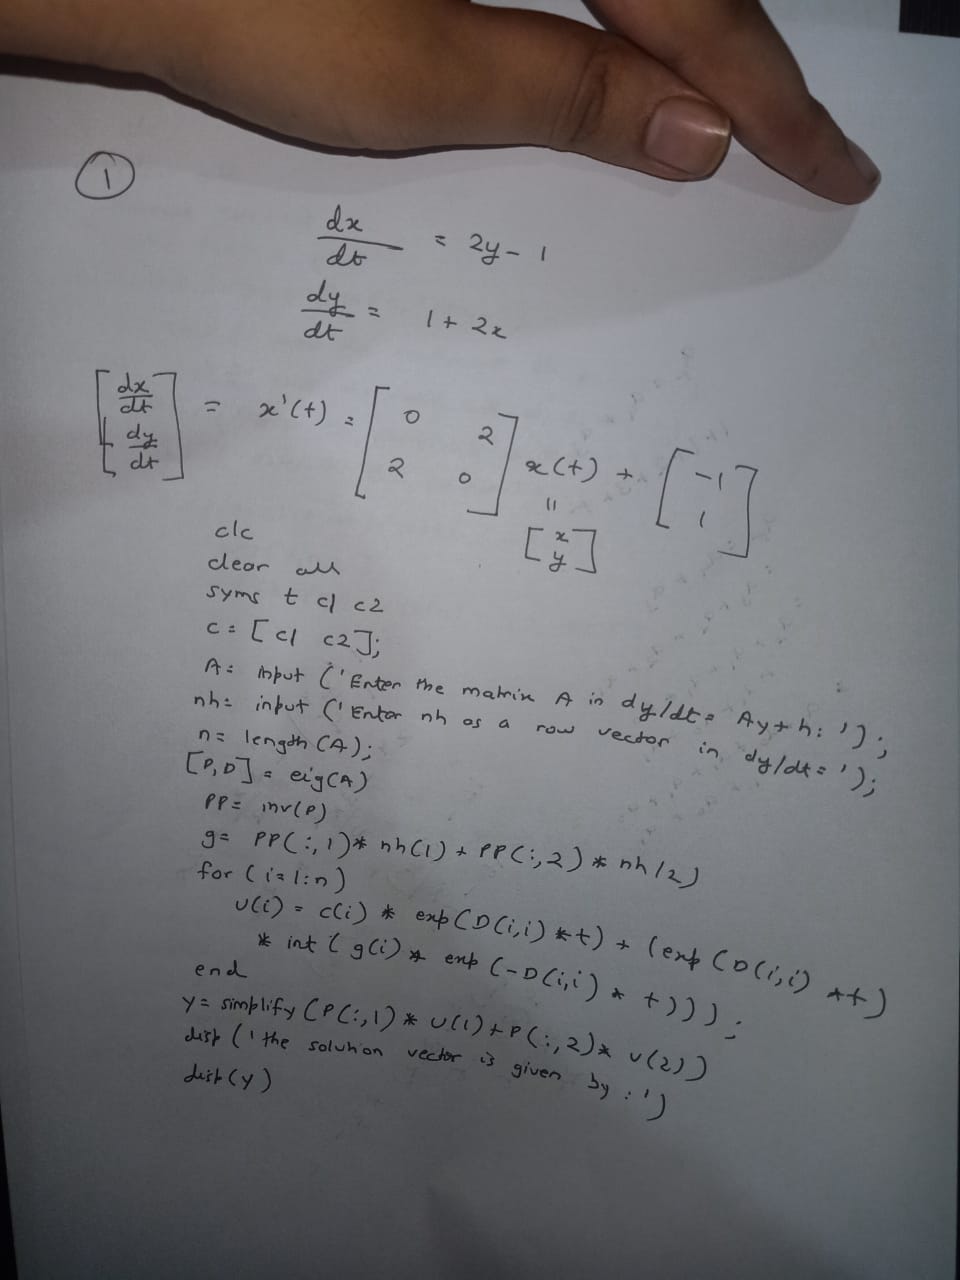 1
dx/dt = 2y - 1
dy/dt = 1 + 2x
[dx/dt dy/dt] = x'(t) = [0 2 2 0] x(t) + [-1 1]
=
[x y]
clc
clear all
syms t c1 c2
c = [c1 c2];
A = input ('Enter the matrix A in dy/dt = Ay + h: ');
nh = input ('Enter nh as a row vector in dy/dt = ');
n = length (A);
[P,D] = eig(A)
PP = inv(P)
g = PP(:,1)* nh(1) + PP(:,2) * nh(2)
for (i=1:n)
u(i) = c(i) * exp(D(i,i) *t) + (exp (D(i,i) *t)
* int (g(i) * exp (-D(i,i) * t)));
end
y = simplify (P(:,1)* u(1) + P(:,2)* u(2))
disp ('the solution vector is given by :')
disp(y)